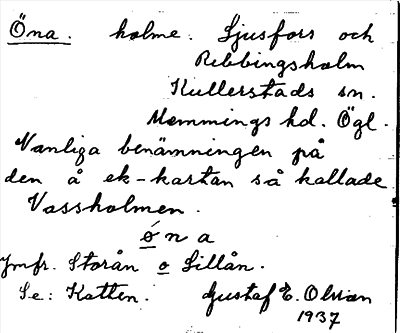 Öna. holme. Ljusfors och
Ribbingsholm
Kullerstads sn.
Memmings hd. Ögl.
Vanliga benämningen på
den å ek-kartan så kallade
Vassholmen.
ǿna
Jmfr. Storån o Lillån.
Se: Kartten. Gustaf E. Olsson
1937